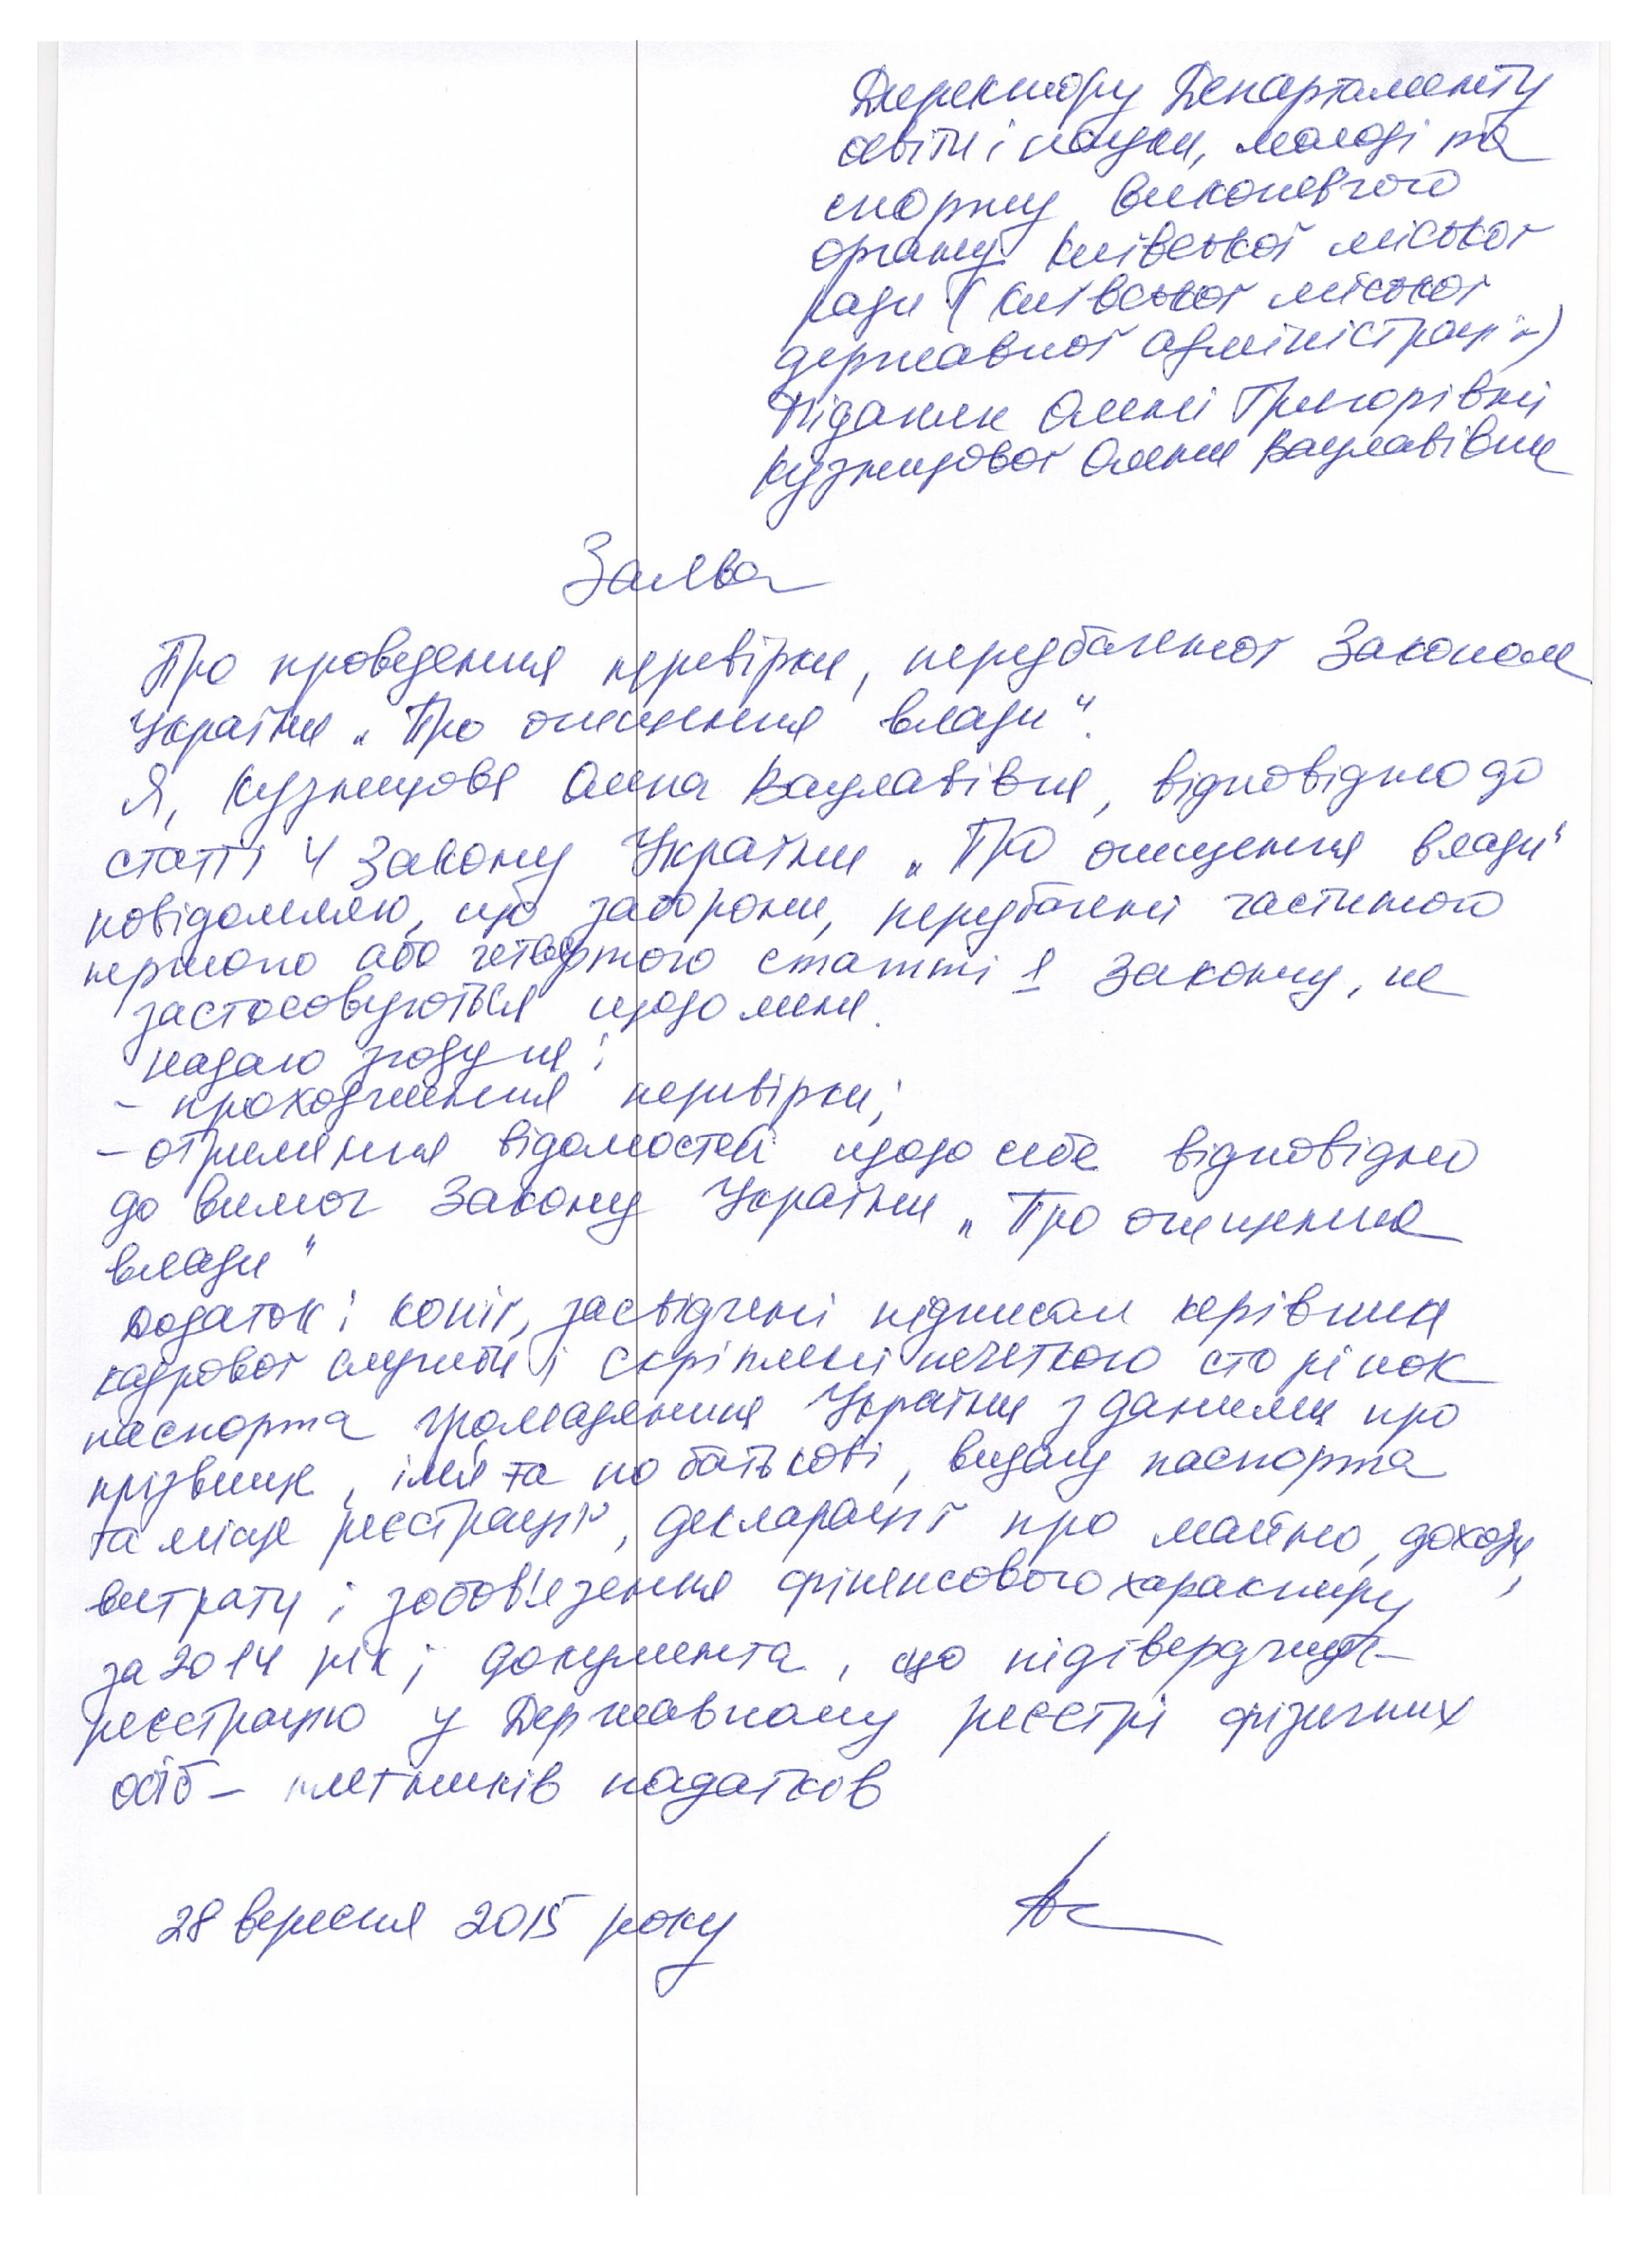 Директору Департаменту
освіти і науки, молоді та
спорту виконавчого
органу Київської міської
ради (Київської міської
державної адміністрації)
Фіданян Олені Григорівні
Кузнецової Олени Вацлавівни
Заява
Про проведення перевірки, передбаченої Законом
України „Про очищення влади".
Я, Кузнецова Олена Вацлавівна, відповідно до
статті 4 Закону України „Про очищення влади"
повідомляю, що заборони, передбачені частиною
першою або четвертою статті 1 Закону, не
застосовуються щодо мене.
Надаю згоду на:
- проходження перевірки;
- отримання відомостей щодо себе відповідно
до вимог Закону України „Про очищення
влади"
Додаток: копії, засвідчені підписом керівника
кадрової служби і скріплені печаткою сторінок
паспорта громадянина України з даними про
прізвище, ім'я та по батькові, видачу паспорта
та місце реєстрації, декларації про майно, доходи,
витрати і зобов'язання фінансового характеру
за 2014 рік; документа, що підтверджує
реєстрацію у Державному реєстрі фізичних
осіб - платників податків
28 вересня 2015 року